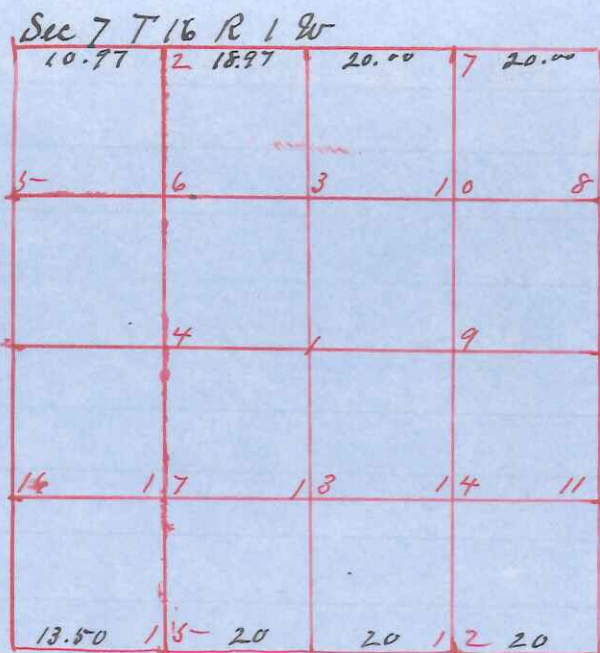 Sec 7 T 16 R 1 W
10.97 2 18.97 20.00 7 20.00
5 6 3 10 8
4 1 9
16 17 13 14 11
13.50 15 20 20 12 20